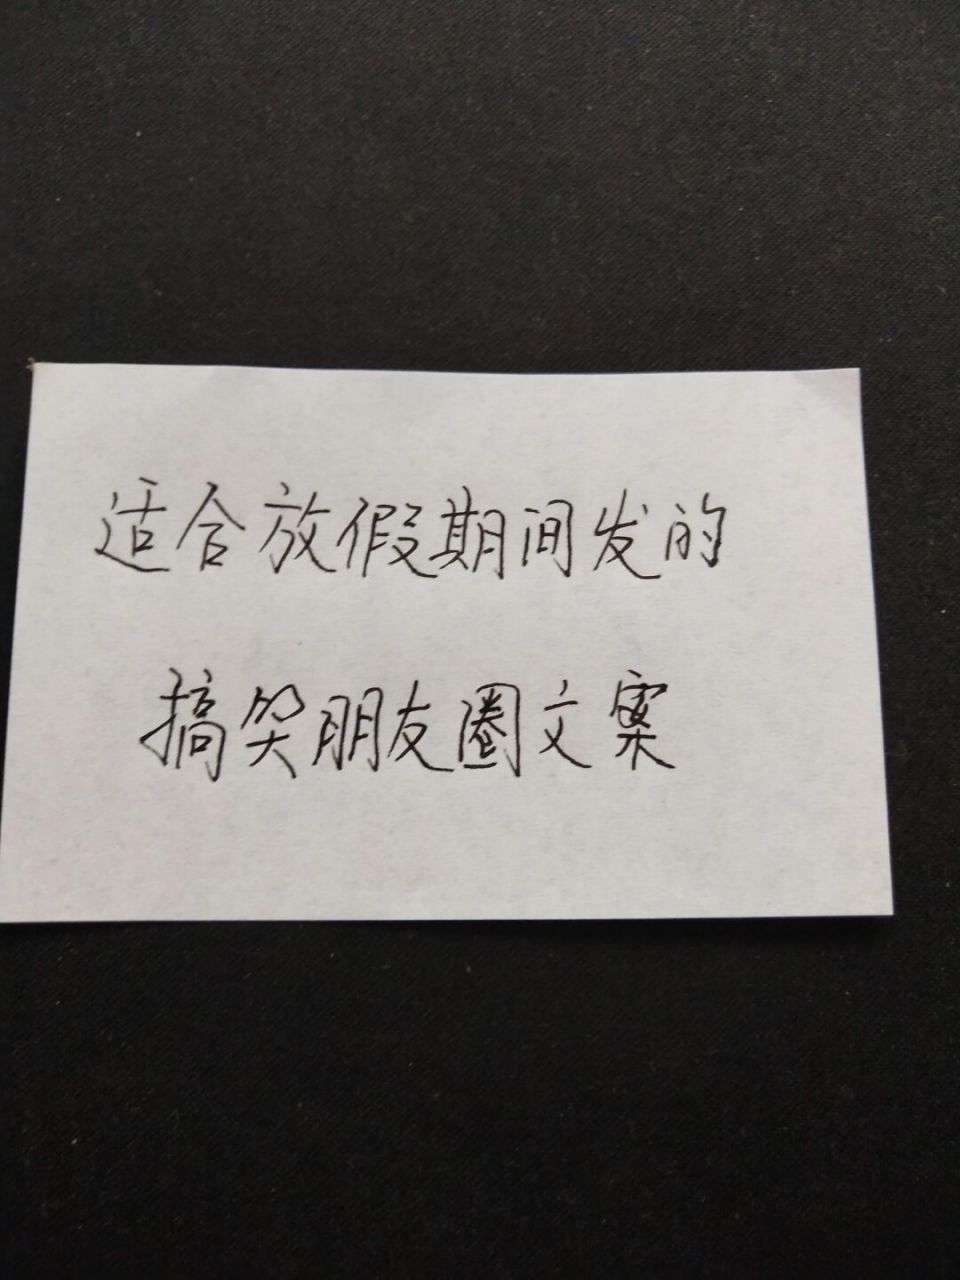 适合放假期间发的
搞笑朋友圈文案